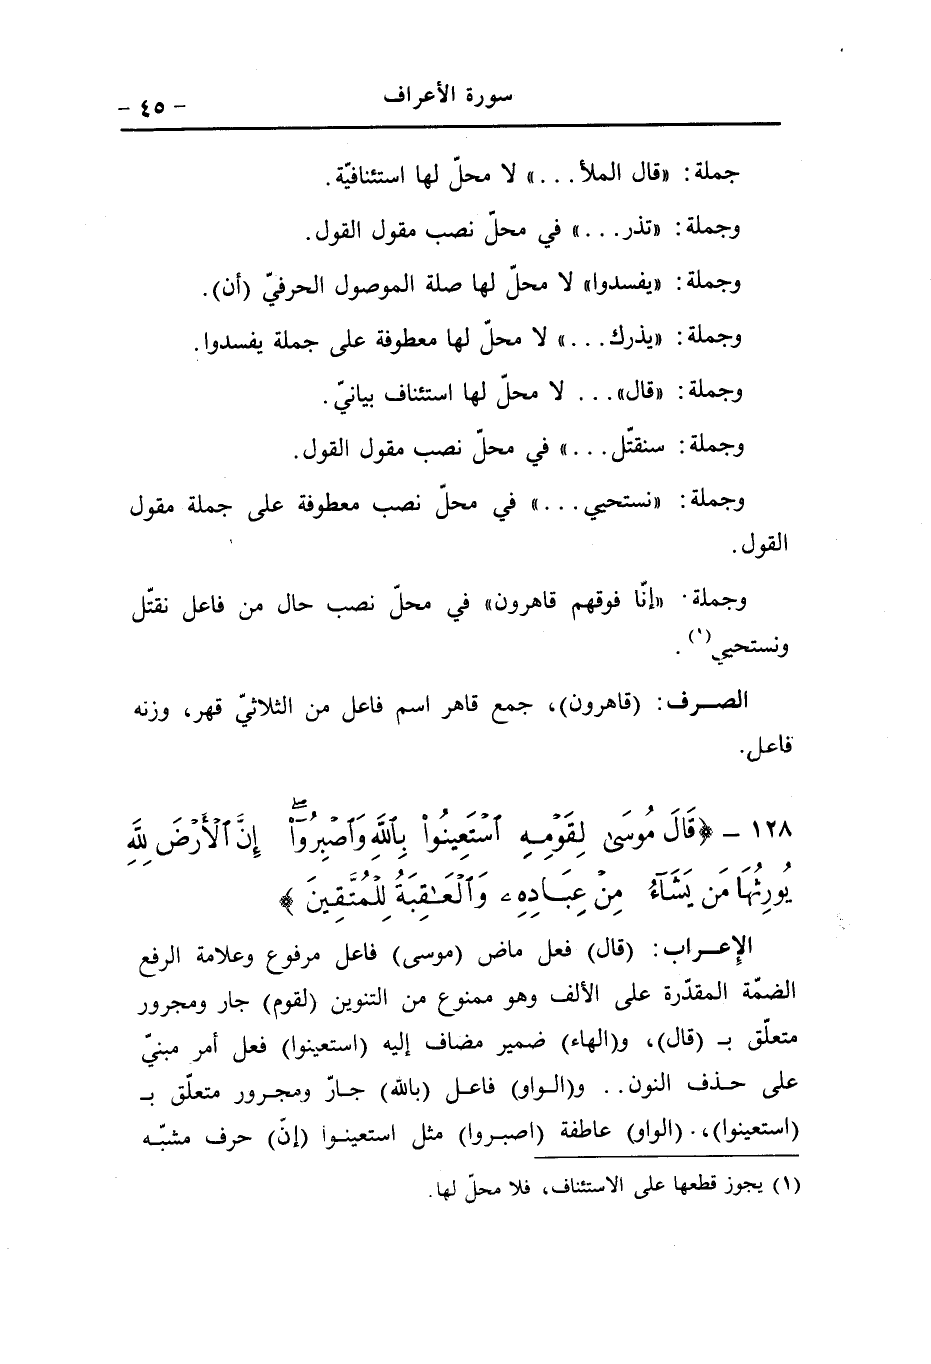 سورة الأعراف - ٤٥ -
جملة: «قال الملأ...» لا محلّ لها استئنافيّة.
وجملة: «تذر...» في محلّ نصب مقول القول.
وجملة: «يفسدوا» لا محلّ لها صلة الموصول الحرفيّ (أن).
وجملة: «يذرك...» لا محلّ لها معطوفة على جملة يفسدوا.
وجملة: «قال»... لا محلّ لها استئناف بيانيّ.
وجملة: سنقتّل...» في محلّ نصب مقول القول.
وجملة: «نستحيي...» في محلّ نصب معطوفة على جملة مقول
القول.
وجملة· «إنّا فوقهم قاهرون» في محلّ نصب حال من فاعل نقتّل
ونستحيي(١).
الصرف: (قاهرون)، جمع قاهر اسم فاعل من الثلاثيّ قهر، وزنه
فاعل.
١٢٨ - ﴿قَالَ مُوسَىٰ لِقَوْمِهِ ٱسْتَعِينُوا۟ بِٱللَّهِ وَٱصْبِرُوٓا۟ ۖ إِنَّ ٱلْأَرْضَ لِلَّهِ
يُورِثُهَا مَن يَشَآءُ مِنْ عِبَادِهِۦ وَٱلْعَـٰقِبَةُ لِلْمُتَّقِينَ﴾
الإعراب: (قال) فعل ماض (موسى) فاعل مرفوع وعلامة الرفع
الضمّة المقدّرة على الألف وهو ممنوع من التنوين (لقوم) جار ومجرور
متعلّق بـ (قال)، و(الهاء) ضمير مضاف إليه (استعينوا) فعل أمر مبنيّ
على حذف النون.. و(الواو) فاعل (بالله) جارّ ومجرور متعلّق بـ
(استعينوا)،. (الواو) عاطفة (اصبروا) مثل استعينوا (إنّ) حرف مشبّه
(١) يجوز قطعها على الاستئناف، فلا محلّ لها.